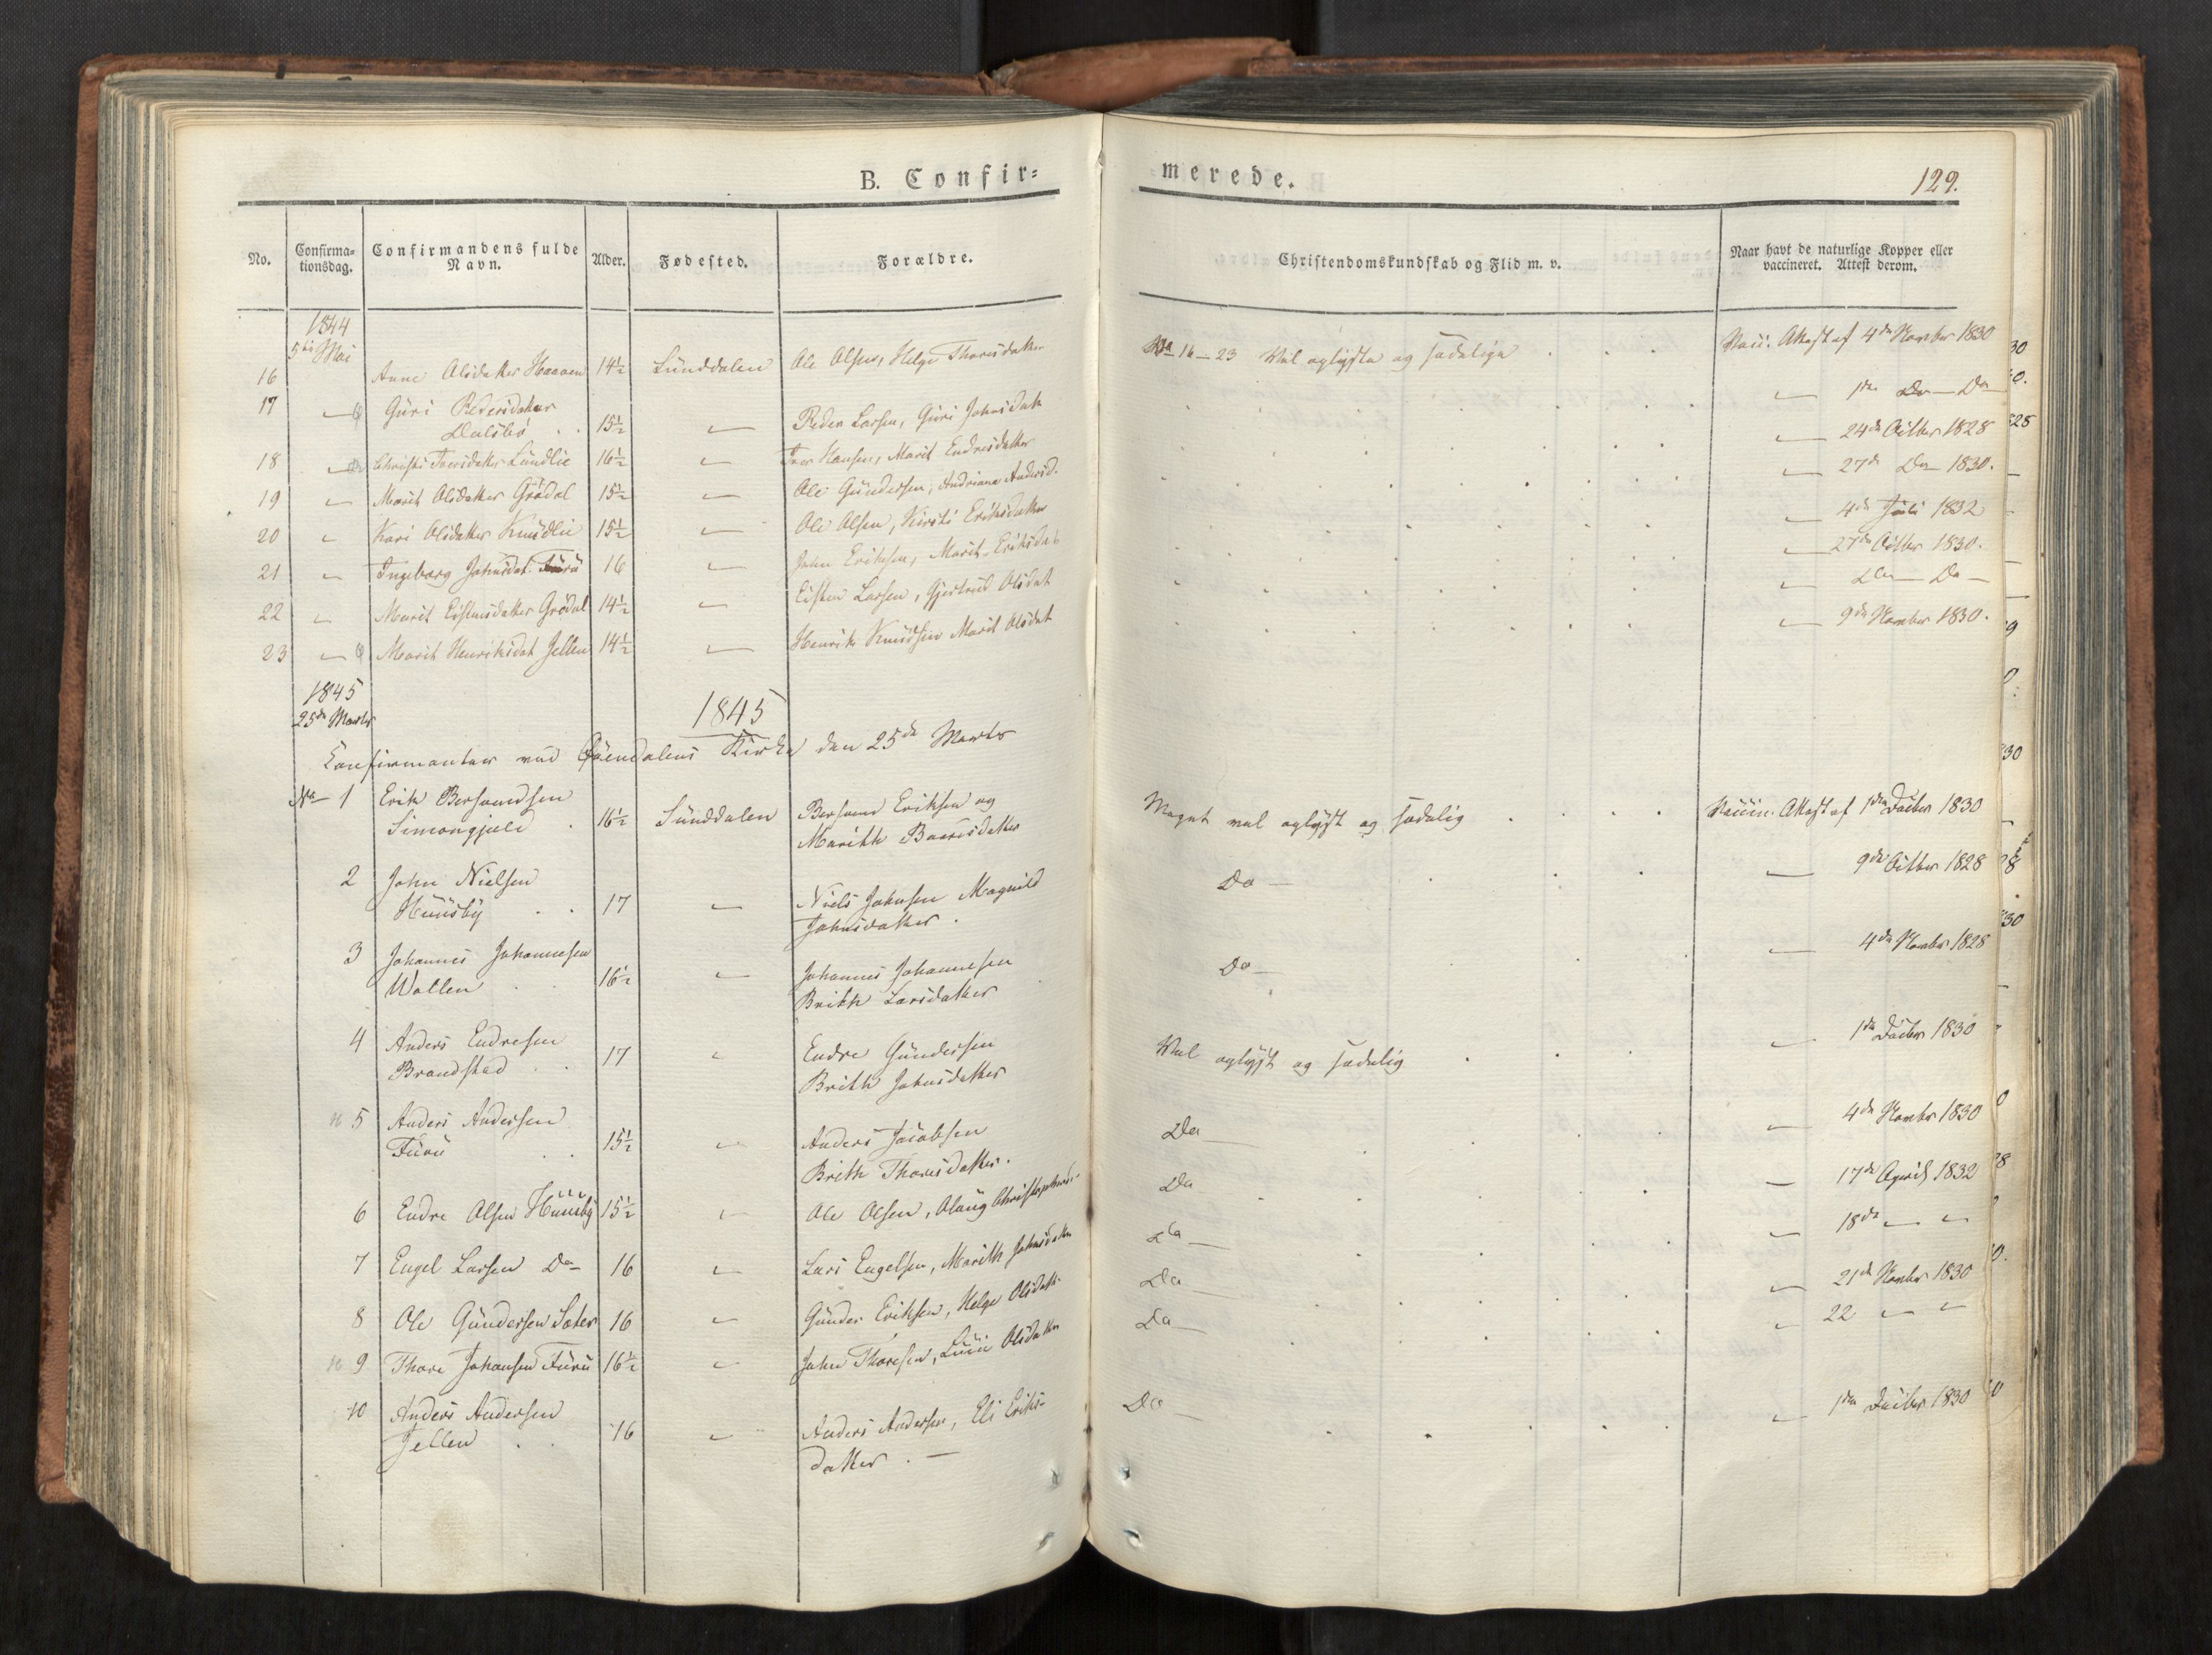 B. Confir=
merede.
129.
No.
Confirma=
tionsdag.
Confirmandens fulde
Navn.
Alder.
Fødested.
Forældre.
Christendomskundskab og Flid m. v.
Naar havt de naturlige Kopper eller
vaccineret. Attest derom.
1844
5te Mai
16 Anne Olsdatter 14½ Sunddalen Ole Olsen, Helge Thoresdatter No 16-23 Vel oplyste og sædelige Vacc. Attest af 4de Novbr 1830
17 — Guri Pedersdatter
Dalsbø 15½ — Peder Larsen, Guri Johnsdatt — 1ste Do — Do
18 — Christi Iversdatter Lundlie 16½ — Iver Hansen, Marit Endresdatter — 24de Octbr 1828
19 — Marit Olsdatter Grødal 15½ — Ole Gundersen, Andriana Andersd. — 27de Do 1830.
20 — Kari Olsdatter Knudlie 15½ — Ole Olsen, Kirsti Eriksdatter — 4de Juli 1832
21 — Ingeborg Johnsdat. Furu 16 — John Eriksen, Marit Eriksdat — 27de Octbr 1830.
22 — Marit Eistensdatter Grødal 14½ — Eisten Larsen, Gjertrud Olsdat — Do — Do —
23 — Marit Henriksdat Jellen 14½ — Henrik Knudsen Marit Olsdat — 9de Novbr 1830.
1845
25de Marts
1845
Confirmanter ved Øxendalens Kirke den 25de Marts
No 1 Erik Bersvendsen
Simongjeld 16½ Sunddalen Bersvend Eriksen og
Marith Baardsdatter Meget vel oplyst og sædelig Vaccin. Attest af 1ste Decbr 1830
2 John Nielsen
Huusby 17 — Niels Johnsen Magnild
Johnsdatter. Do — — 9de Octbr 1828
3 Johannes Johannesen
Wollen 16½ — Johannes Johannesen
Brith Larsdatter Do — — 4de Novbr 1828
4 Anders Endresen
Brandstad 17 — Endre Gundersen
Brith Johnsdatter Vel oplyst og sædelig — 1ste Decbr 1830
5 Anders Andersen
Furu 15½ — Anders Jacobsen
Brith Thoresdatter. Do — — 4de Novbr 1830
6 Endre Olsen Huusby 15½ — Ole Olsen, Olaug Christophersd. Do — 17de April 1832
7 Engel Larsen Do 16 — Lars Engelsen, Marith Johnsdatter Do — — 18de — —
8 Ole Gundersen Sæter 16 — Gunder Eriksen, Helge Olsdatt. Do — — 21de Novbr 1830
9 Thore Johansen Furu 16½ — John Thoresen, Olsdatter Do — — 22 — —
10 Anders Andersen
Jellen 16 — Anders Andersen, Eli Eriks-
datter. — Do — — 1ste Decbr 1830